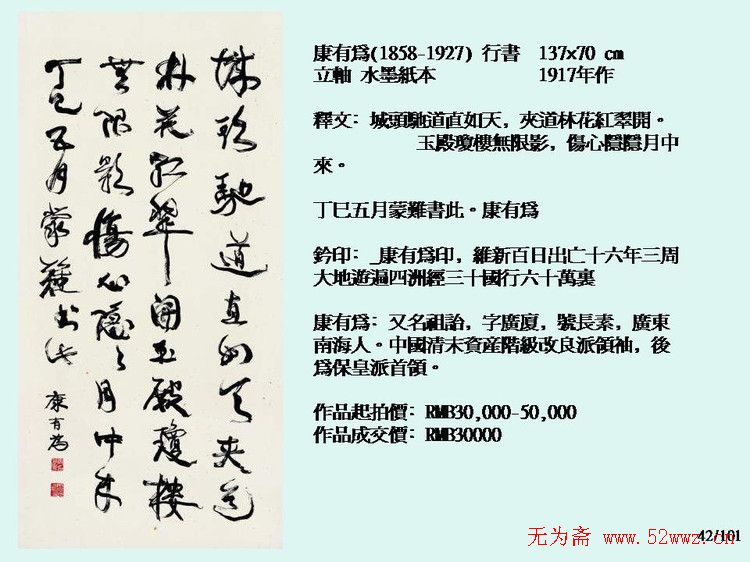 城頭馳道直如天夾道
林花紅翠開玉殿瓊樓
無限影傷心隱々月中來
丁巳五月蒙難書此
康有為
康有爲(1858-1927) 行書 137x70 cm
立軸 水墨紙本 1917年作
釋文: 城頭馳道直如天，夾道林花紅翠開。
玉殿瓊樓無限影，傷心隱隱月中
來。
丁巳五月蒙難書此。康有爲
鈐印: _康有爲印，維新百日出亡十六年三周
大地遊遍四洲經三十國行六十萬裏
康有爲: 又名祖詒，字廣廈，號長素，廣東
南海人。中國清末資産階級改良派領袖，後
爲保皇派首領。
作品起拍價: RMB30,000-50,000
作品成交價: RMB30000
42/101
无为斋 www.52wwz.cn